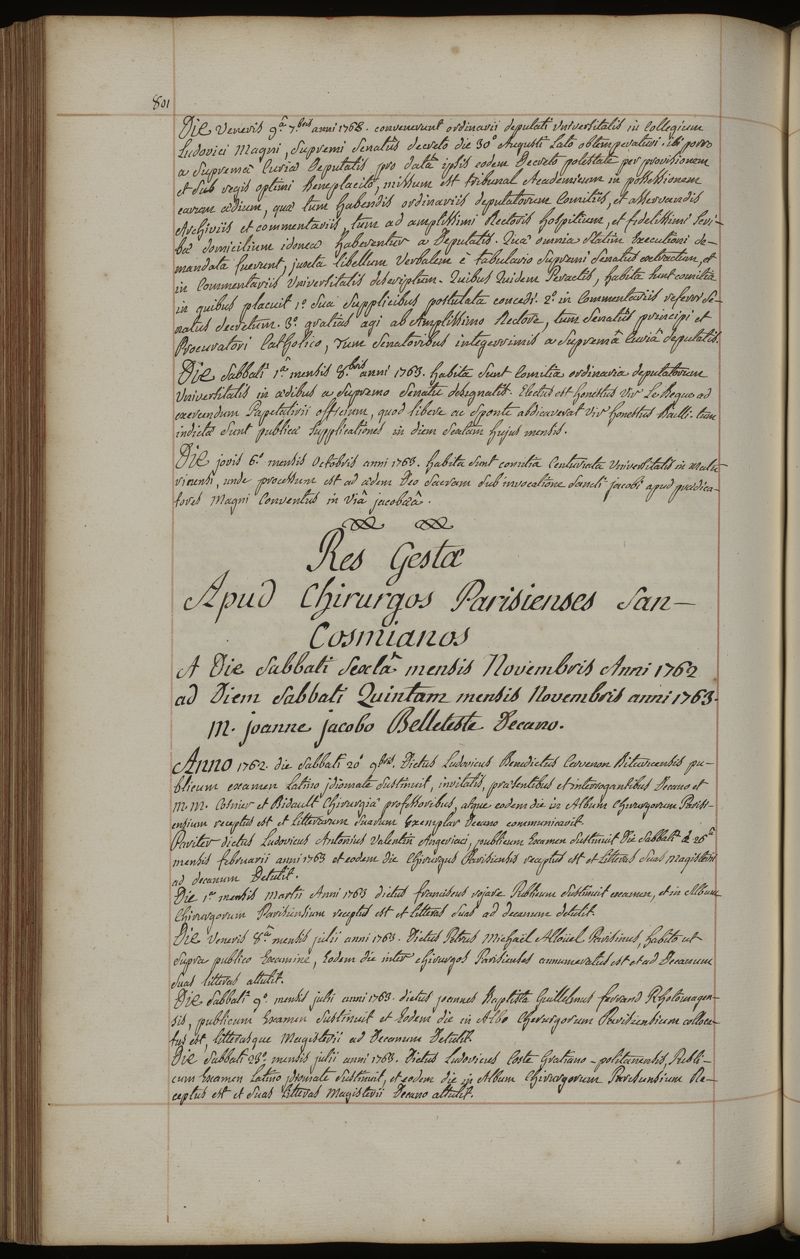 801
Die Veneris 9.a 7.bris anni 1763. convenerunt ordinarii deputati Universitatis in Collegium
Ludovici Magni, Supremi Senatus decreto die 30.o Augusti Lato obtemperaturi. ibi porro
a Supremâ Curiâ Deputatis pro datâ ipsis eodem Decreto potestate per provisionem
et sub regis optimi beneplacito, missum est tribunal Academicum in possessionem
earum ædium, quæ tum habendis ordinariis deputatorum Comitiis, et asservandis
Archiviis et commentariis, tum ad amplissimi Rectoris hospitium, et fidelissimi Scri-
bæ domicilium idoneæ haberentur a Deputatis. Quæ omnia statim Executioni de-
mandata fuerunt, juxta libellum Verbalem è tabulario Supremi Senatus extractum, et
in Commentariis Universitatis descriptum. Quibus Quidem Peractis, habita sunt comitia
in quibus placuit 1.o Sua Supplicibus postulata concedi. 2.o in Commentariis referri Se-
natus decretum. 3.o gratias agi ab Amplissimo Rectore, tum Senatus principi et
Procuratori Catholico, Tum Senatoribus integerrimis a Supremâ Curiâ deputatis.
Die Sabbati 1.a mensis 8.bris anni 1763. habita sunt Comitia ordinaria deputatorum
Universitatis in ædibus a Supremo Senatu designatis. Electus est honestus Vir Le Roque ad
exercendum Papetarii officium, quod libere ac sponte abdicaverat Vir honestus Bailli. tum
indictæ sunt publicæ Supplicationes in diem Sextam hujus mensis.
Die jovis 6.o mensis Octobris anni 1763. habita sunt comitia Centuriata Universitatis in Matu-
rinensi, unde processum est ad ædem Deo Sacram sub invocatione Sancti jacobi apud prædica-
tores Magni Conventus in Viâ jacobæâ.
Res Gestæ
Apud Chirurgos Parisienses San-
Cosmianos
A Die Sabbati Sextâ mensis Novembris Anni 1762
ad Diem Sabbati Quintam mensis Novembris anni 1763.
M. joanne jacobo Belleteste Decano.
Anno 1762. die Sabbati 20.o 9.bris. Dictus Ludovicus Benedictus Carvenon Bituricensis pu-
blicum examen Latino jdiomate Sustinuit, invitatis, præsentibus et interrogantibus Decano et
M.M. Cosnier et Bidault Chirurgiæ professoribus, atque eodem die in Album Chirurgorum Parisi-
ensium receptus est et Litterarum Suarum Exemplar Decano communicavit.
Pariter dictus Ludovicus Antonius Valentin Angeriaci, publicum Examen Sustinuit Die Sabbati 26.a
mensis februarii anni 1763 et eodem die Chirurgus Parisiensis receptus est et Litteras Suas Magisterii
ad decanum Detulit.
Die 1.a mensis Martii Anni 1763 dictus franciscus rojare Publicum Sustinuit examen, et in Album
Chirurgorum Parisiensium receptus est et litteras Suas ad decanum detulit.
Die Veneris 8.a mensis julii anni 1763. Dictus Petrus Michaël Allouel Parisinus, habito ut
Supra publico Examine, Eodem die inter chirurgos Parisienses annumeratus est et ad Decanum
Suas litteras attulit.
Die Sabbati 9.o mensis julii anni 1763. dictus joannes Baptista Guillelmus ferrand Rhotomagen-
sis, publicum Examen Sustinuit et Eodem die in Albo Chirurgorum Parisiensium colloca-
tus est, litterasque Magisterii ad Decanum Detulit.
Die Sabbati 23.a mensis julii anni 1763. Dictus Ludovicus Coste Gratiano-politanensis, Publi-
cum Examen Latino jdiomate Sustinuit, et eodem die in Album Chirurgorum Parisiensium Re-
ceptus est et Suas Litteras Magisterii Decano attulit.